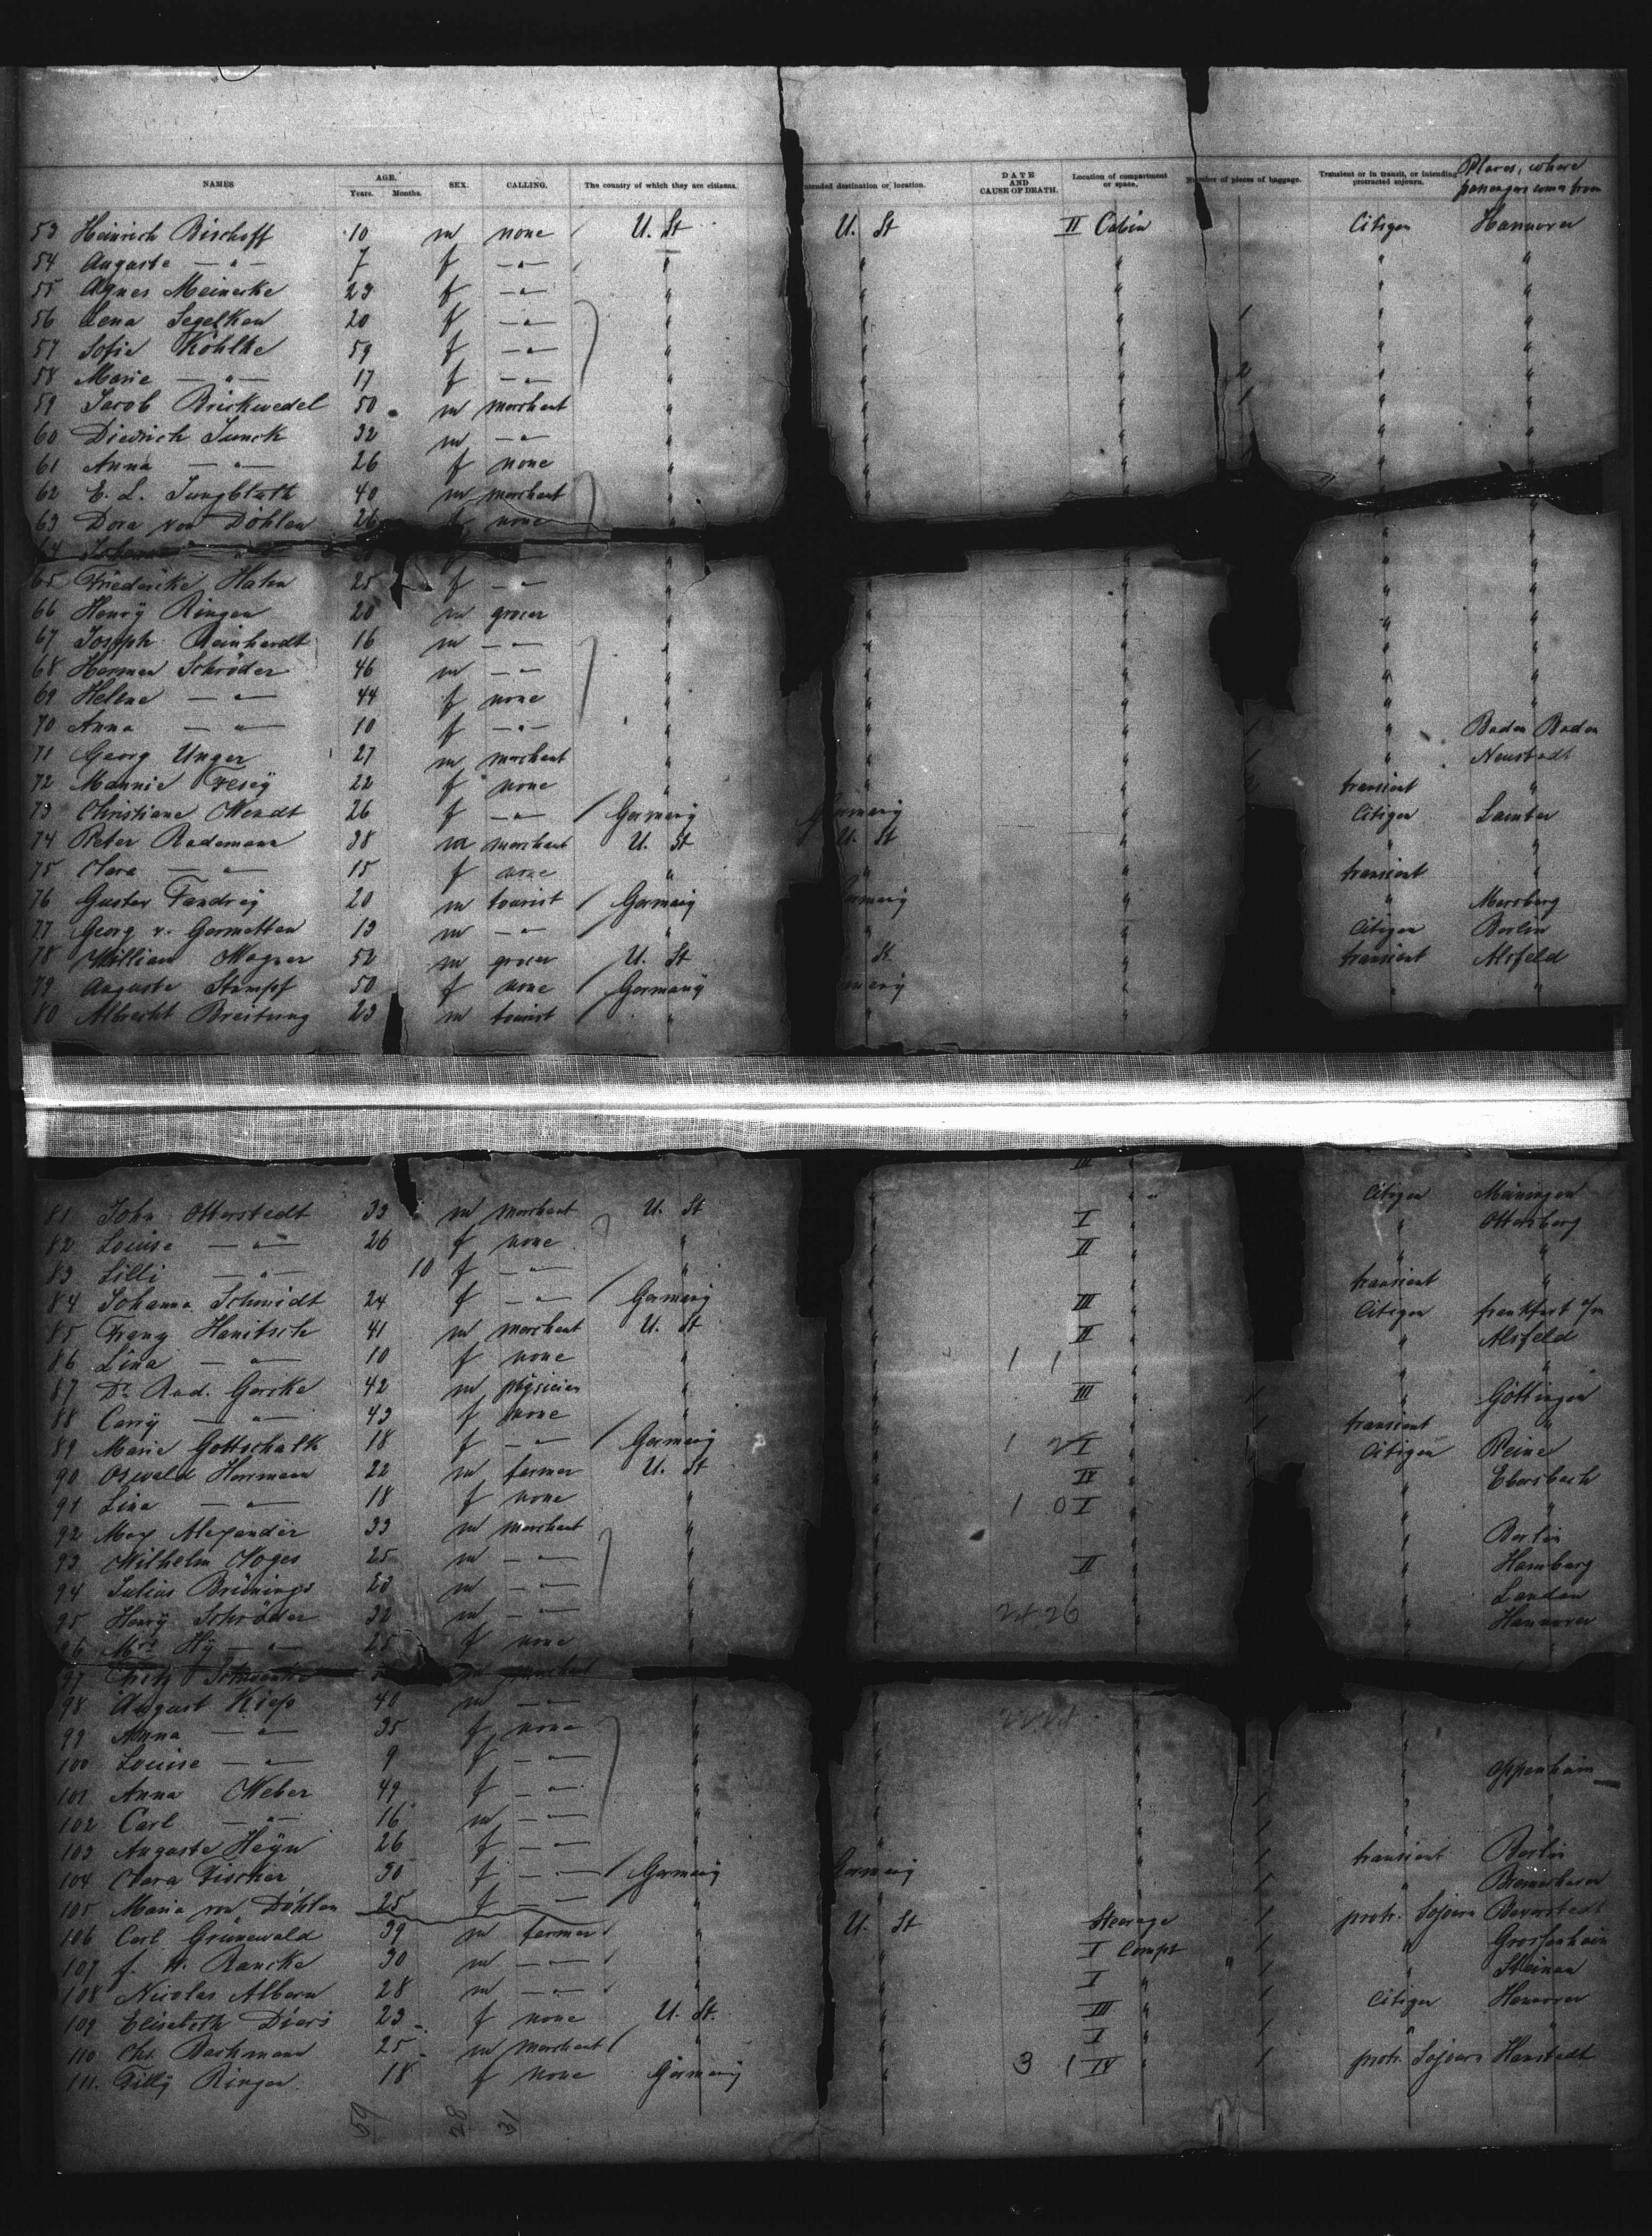 NAMES AGE. Years. Months. SEX. CALLING. The country of which they are citizens. Intended destination or location. DATE AND CAUSE OF DEATH. Location of compartment or space. Number of pieces of baggage. Transient or in transit, or intending protracted sojourn. Places, where passengers come from
53 Heinrich Bischoff 10 m none U. St U. St II Cabin Citizen Hannover
54 Auguste — " — 7 f — " — " " " " "
55 Agnes Meinecke 23 f — " — " " " " "
56 Lena Segelken 20 f — " — " " " 1 " "
57 Sofie Köhlke 59 f — " — " " " " "
58 Marie — " — 17 f — " — " " " 2 " "
59 Jacob Brickwedel 50 m merchant " " " 1 " "
60 Diedrich Junck 32 m — " — " " " " "
61 Anna — " — 26 f none " " " " "
62 E. L. Jungbluth 40 m merchant " " "
63 Dora von Döhlen 26 f none "
64
65 Friedericke Hahn 25 f — " — " " " " "
66 Henry Ringen 20 m grocer " " " " "
67 Joseph Reinhardt 16 m — " — " " " " "
68 Herman Schröder 46 m — " — " " " " "
69 Helene — " — 44 f none " " " " "
70 Anna — " — 10 f — " — " " " 1 " Baden Baden
71 Georg Unger 27 m merchant " " " 1 " Neustadt
72 Mannie 22 f none " " " transient "
73 Christiane Wendt 26 f — " — Germany Germany " Citizen
74 Peter Rademann 38 m merchant U. St U. St " " "
75 Clara — " — 15 f none " " " transient "
76 Gustav Fandrey 20 m tourist Germany Germany " " Mersberg
77 Georg v. Gormetten 13 m — " — " " " Citizen Berlin
78 William Wagner 52 m grocer U. St St " transient Alsfeld
79 Auguste Stumpf 50 f none Germany Germany " " "
80 Albrecht Breitung 23 m tourist " " "
III Citizen Meiningen
81 John Otterstedt 33 m merchant U. St " I " " Ottersberg
82 Louise — " — 26 f none " " II " " "
83 Lilli — " — 10 f — " — " " " transient "
84 Johanna Schmidt 24 f — " — Germany " III " Citizen Frankfurt a/m
85 Franz Hanitsch 41 m merchant U. St " II " " Alsfeld
86 Lina — " — 10 f none " " 1 1 " " "
87 Dr Rud. Gercke 42 m physician " " III " " Göttingen
88 Carry — " — 43 f none " " " transient "
89 Marie Gottschalk 18 f — " — Germany " 1 2 I " Citizen Peine
90 Oswald Herrmann 22 m farmer U. St " IV " " Ebersbach
91 Lina — " — 18 f none " " 1 0 I " " "
92 Max Alexander 33 m merchant " " " " Berlin
93 Wilhelm Voges 25 m — " — " " II " " Hamburg
94 Julius Brünings 23 m — " — " " " " London
95 Henry Schröder 32 m — " — " " " " Hannover
96 Mrs Hy — " — 25 f none "
97
98 August Kiep 40 m — " — "
99 Anna — " — 35 f none " " "
100 Louise — " — 9 f — " — " " " " Oppenheim
101 Anna Weber 49 f — " — " " " 1 " "
102 Carl — " — 16 m — " — " " " 1 " "
103 Auguste Heyn 26 f — " — " " " 1 transient Berlin
104 Clara Fischer 30 f — " — Germany Germany " 1 " Bremerhaven
105 Maria von Döhlen 25 f — " — " " " 1 protr. Sojourn Beverstedt
106 Carl Grünewald 39 m farmer " U. St Steerage 1 " Grossenhain
107 J. H. Rancke 30 m — " — " " I Compt 1 " Steinau
108 Nicolas Albern 28 m — " — " " I " 1 Citizen Hannover
109 Elisabeth Diers 23 f none U. St. " III " " "
110 Chr. Bachmann 25 m merchant " " I " 1
111. Tilly Ringen 18 f none Germany " 3 1 IV " 1 protr. Sojourn Hanstedt
59 28 31